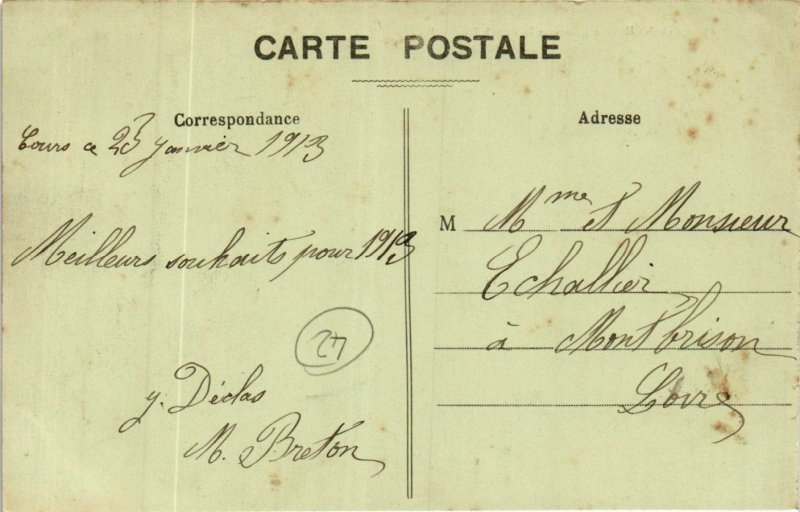 CARTE POSTALE
Correspondance
Tours ce 23 janvier 1913
Meilleurs souhaits pour 1913
y. Déclas
M. Breton
Adresse
M Mme et Monsieur
Echallier
à Montbrison
Loire